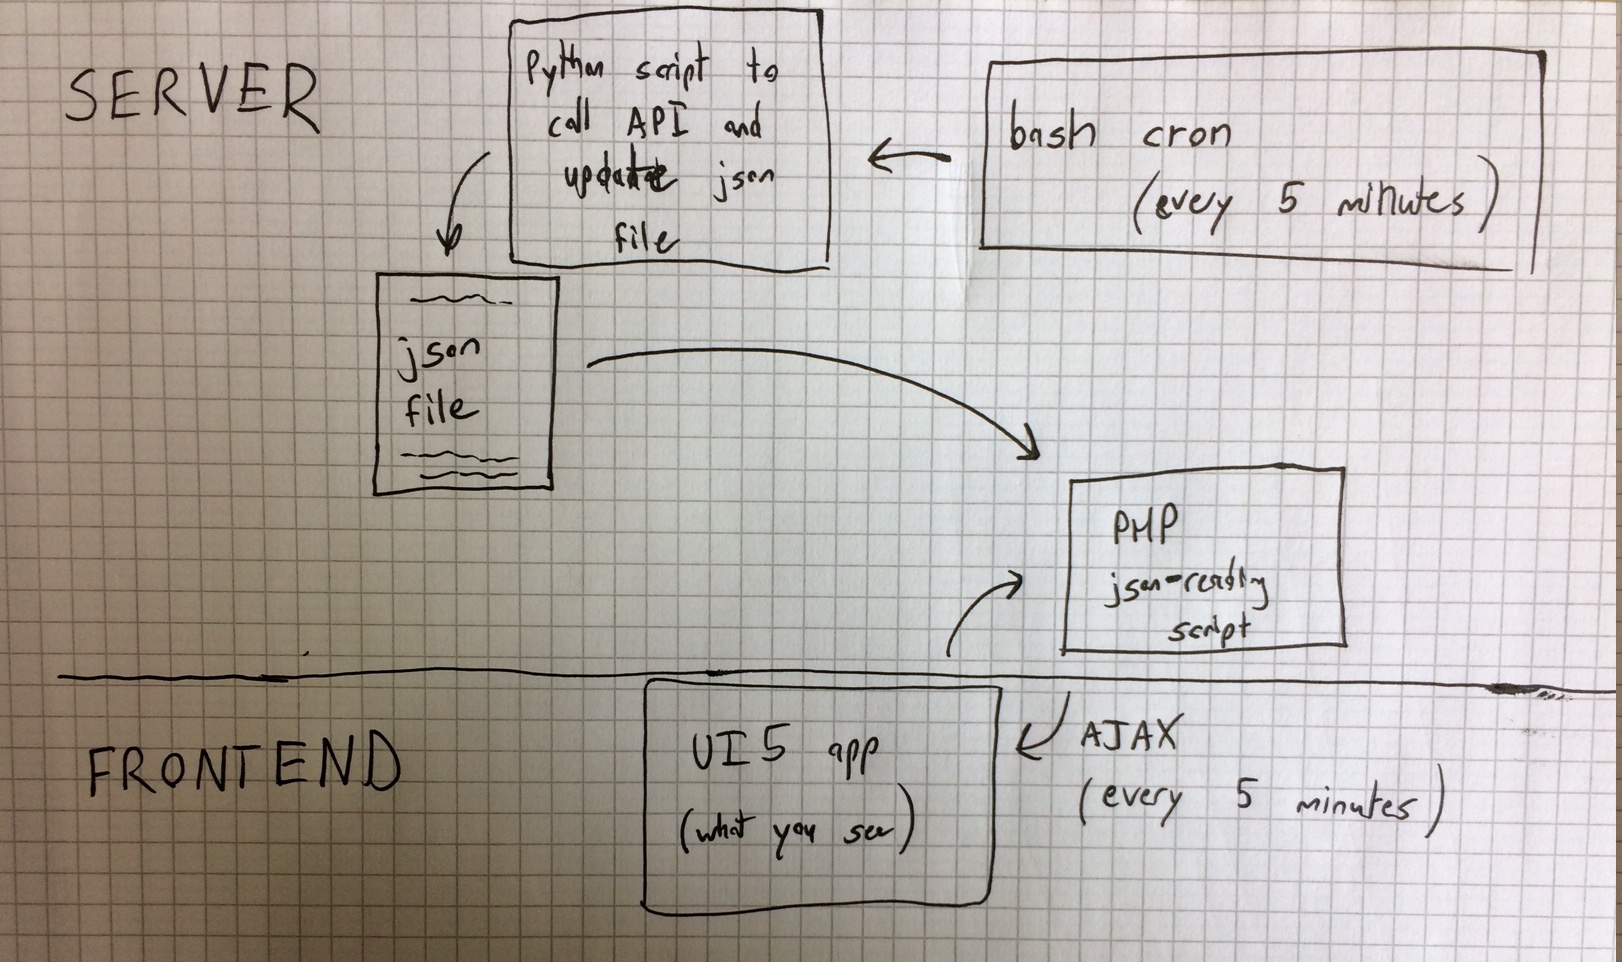 SERVER
Python script to
call API and
update json
file
bash cron
(every 5 minutes)
json
file
PHP
json-reading
script
FRONTEND
UI5 app
(what you see)
AJAX
(every 5 minutes)